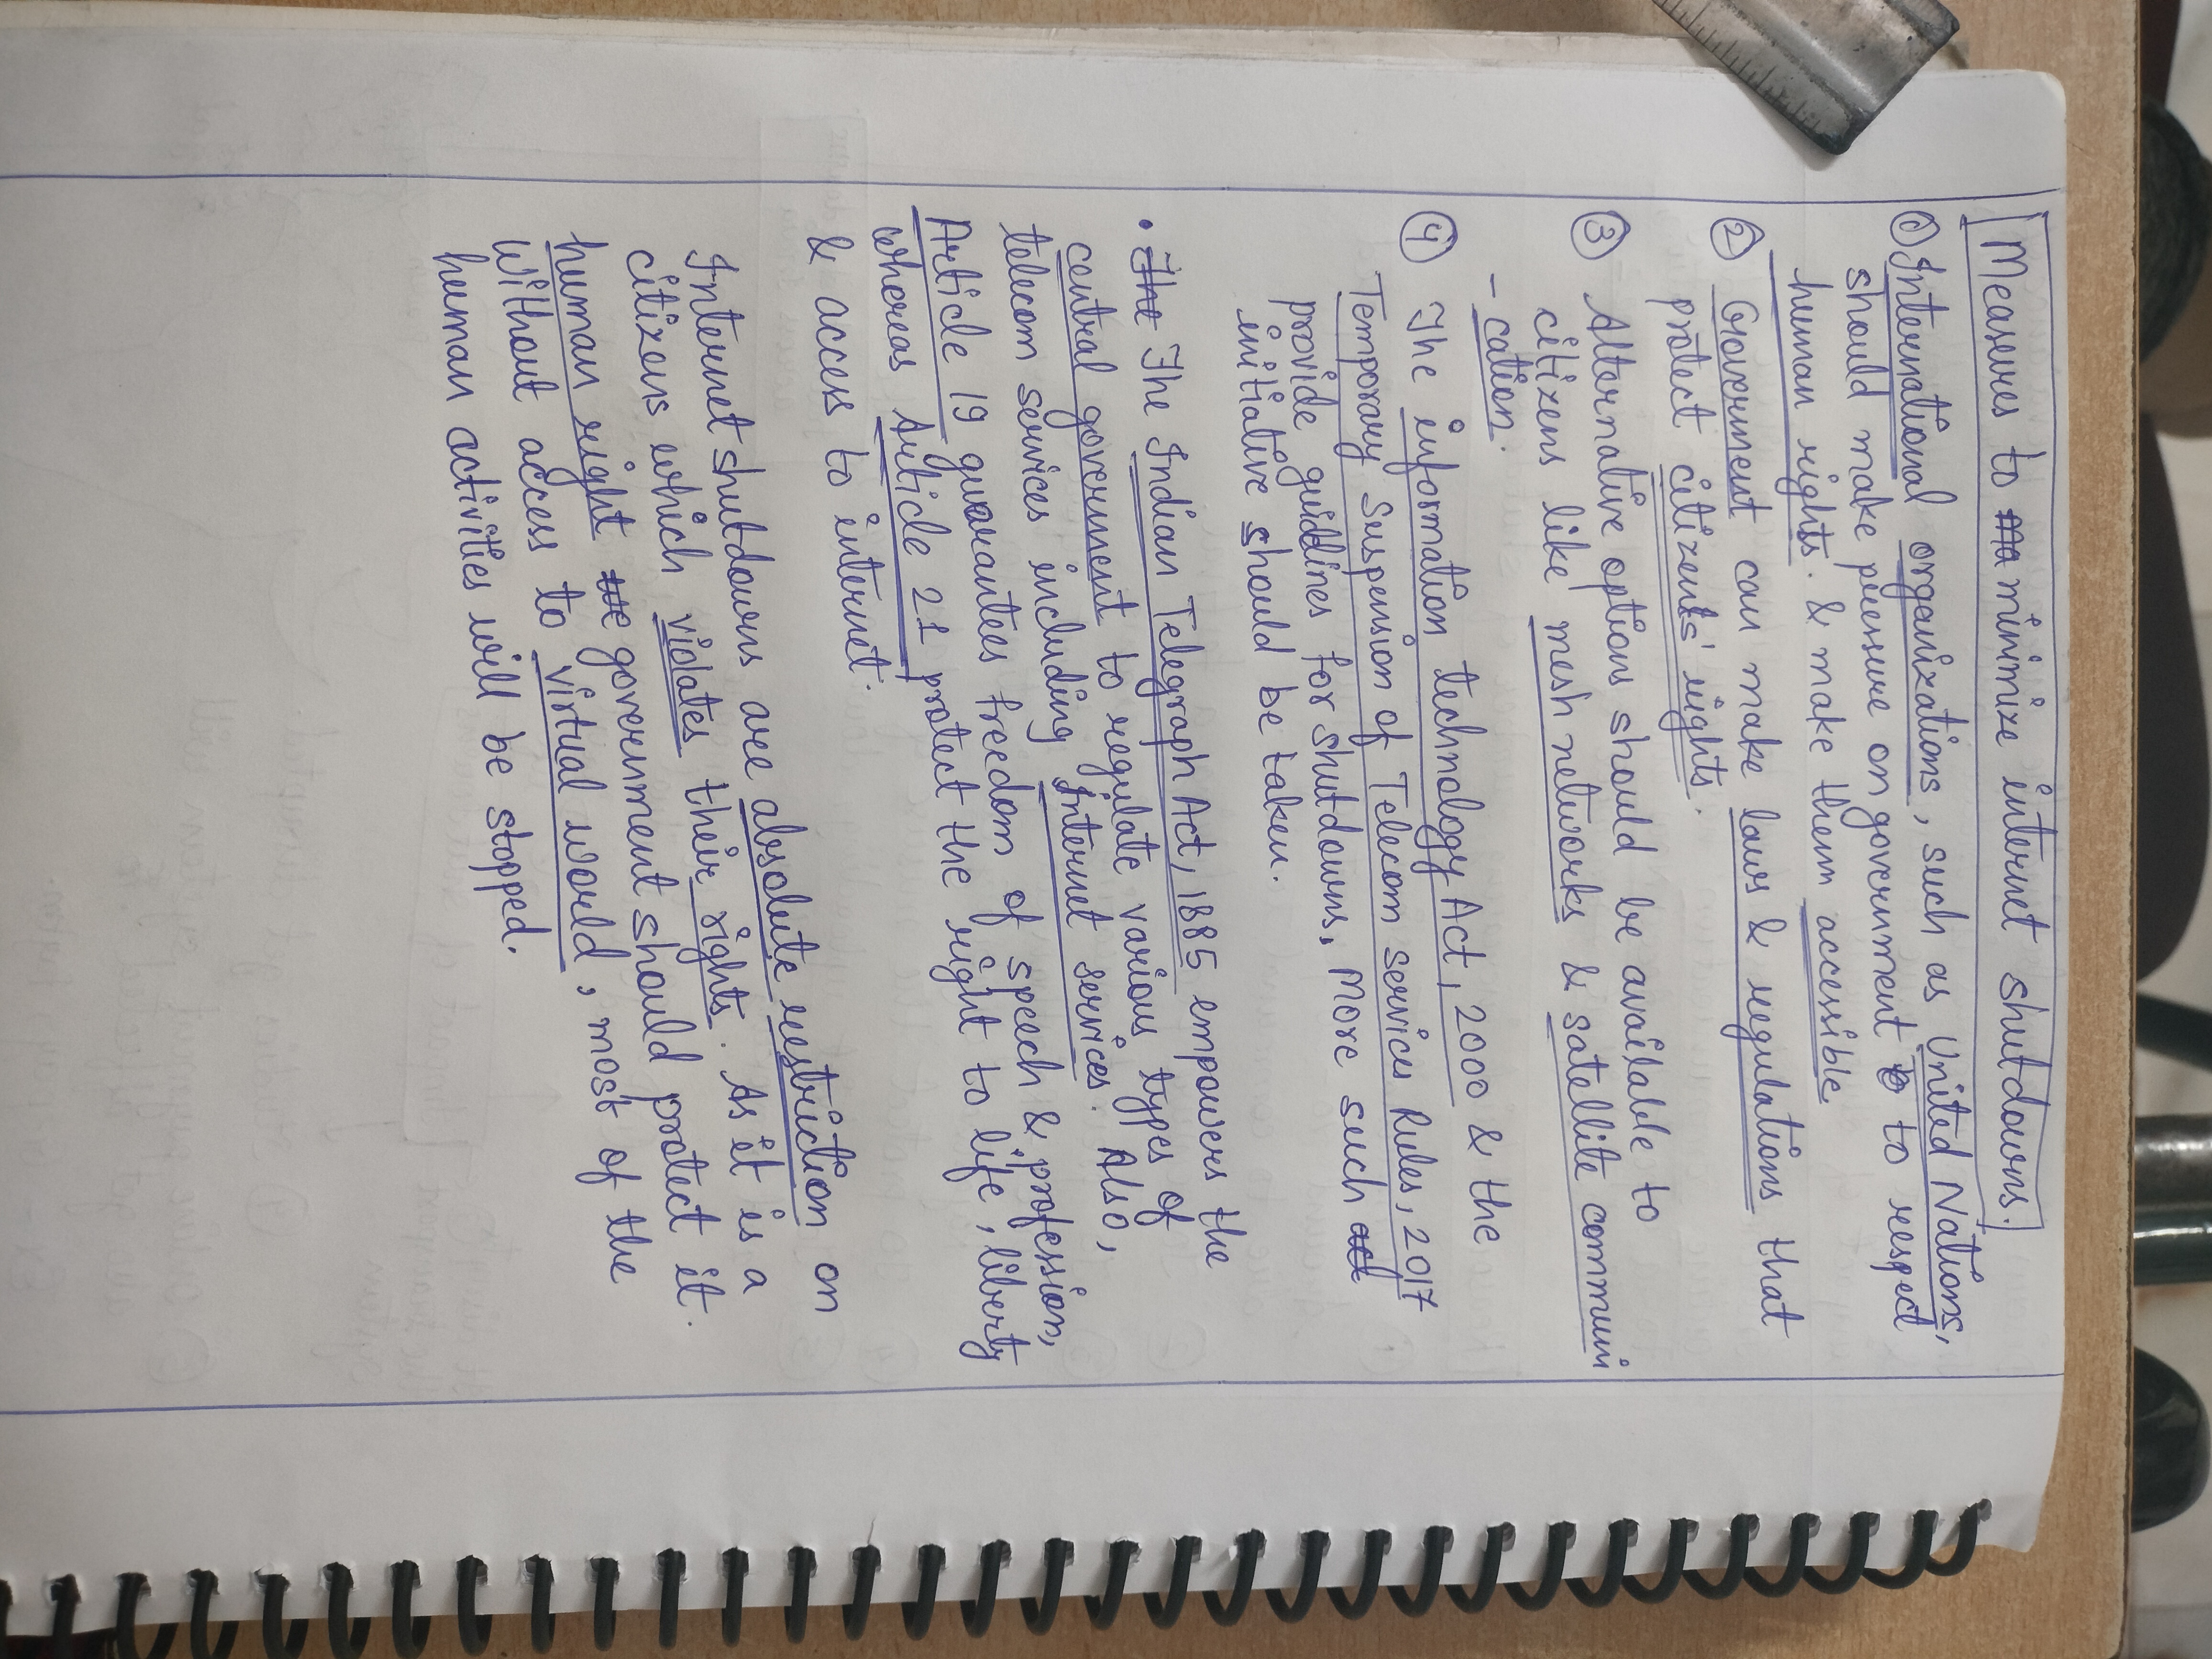 Measures to minimize internet shutdowns.
① International organizations, such as United Nations,
should make pressure on government to respect
human rights. & make them accessible.
② Government can make laws & regulations that
protect citizents' rights.
③ Alternative options should be available to
citizens like mesh networks & satellite communi
- cation.
④ The information technology Act, 2000 & the
Temporary Suspension of Telecom services Rules, 2017
provide guidlines for shutdowns, More such
initiative should be taken.
• The Indian Telegraph Act, 1885 empowers the
central government to regulate various types of
telecom services including Internet services. Also,
Article 19 guarantees freedom of speech & profession,
whereas Article 21 protect the right to life, liberty
& access to internet.
Internet shutdowns are absolute restriction on
citizens which violates their rights. As it is a
human right government should protect it.
Without access to virtual world, most of the
human activities will be stopped.